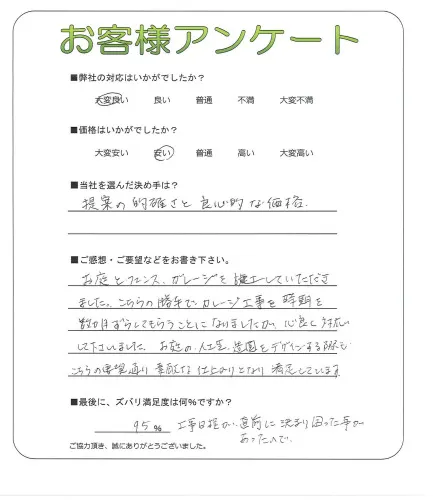 お客様アンケート
■弊社の対応はいかがでしたか?
大変良い 良い 普通 不満 大変不満
■価格はいかがでしたか?
大変安い 安い 普通 高い 大変高い
■当社を選んだ決め手は?
提案の的確さと良心的な価格.
■ご感想・ご要望などをお書き下さい。
お庭とフェンス、ガレージを施工していただき
ました。こちらの勝手でガレージ工事を時期を
数か月ずらしてもらうことになりましたが、心良く対応
して下さいました。お庭の人工芝、造園をデザインする際も
こちらの要望通り素敵な仕上がりとなり満足しています
■最後に、ズバリ満足度は何%ですか?
95% 工事日程が直前に決まり困った事が
あったので.
ご協力頂き、誠にありがとうございました。